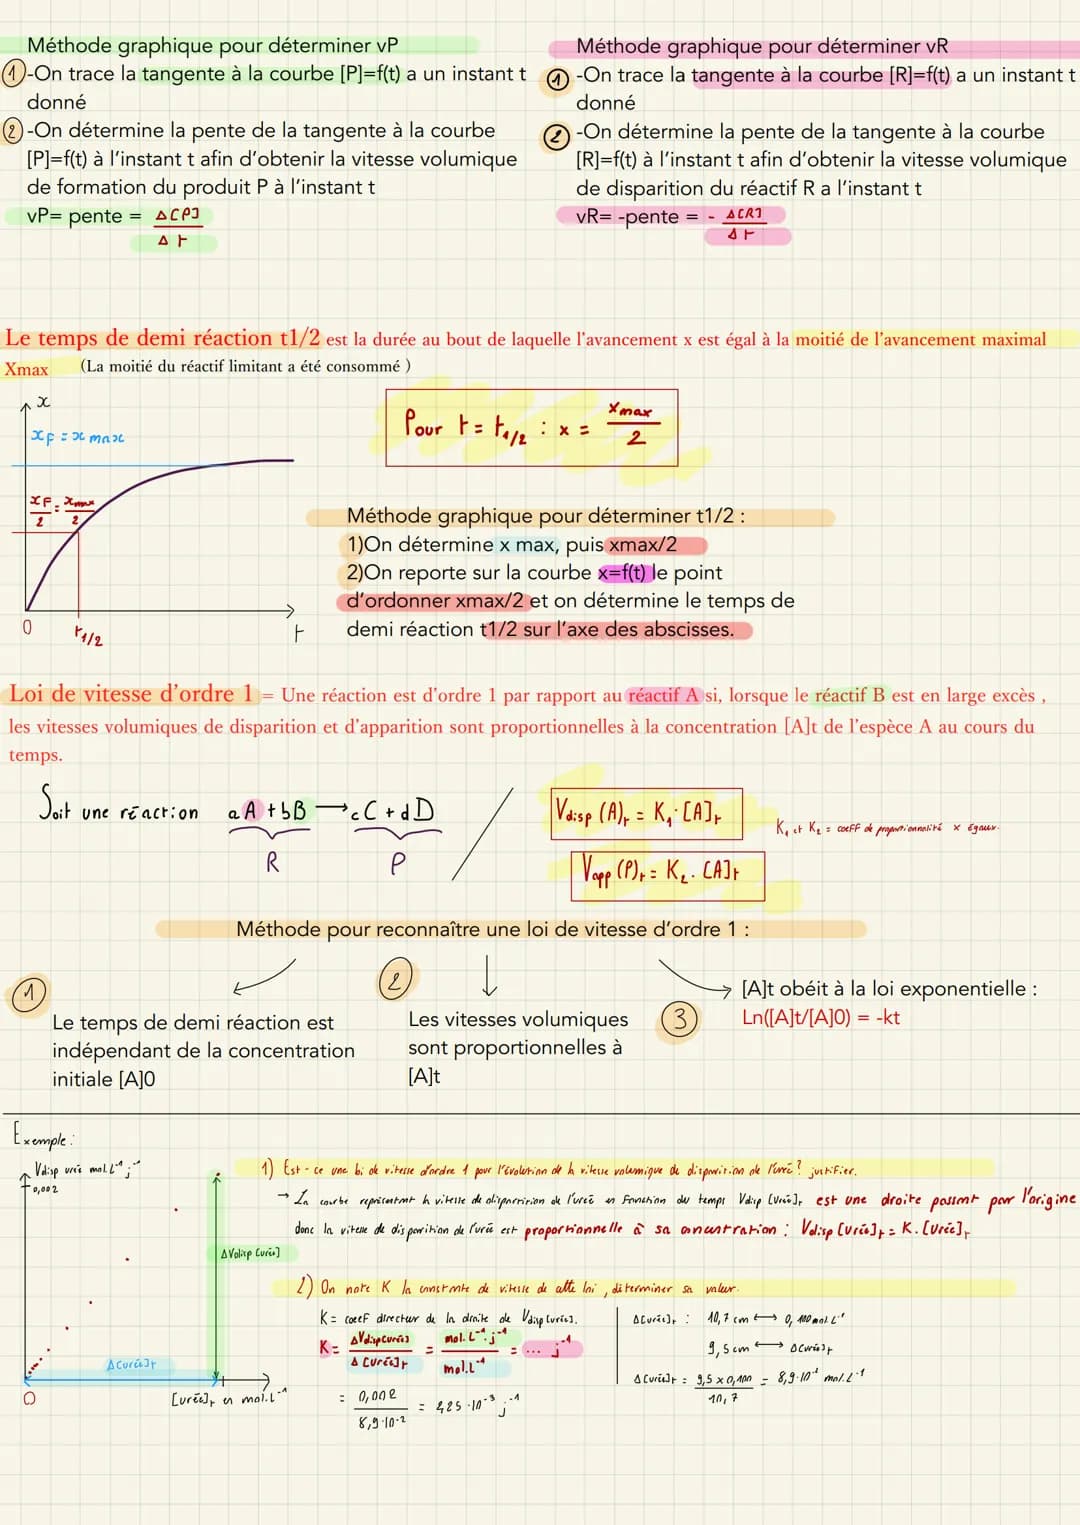 Méthode graphique pour déterminer vP
① -On trace la tangente à la courbe [P]=f(t) a un instant t
donné
② -On détermine la pente de la tangente à la courbe
[P]=f(t) à l'instant t afin d'obtenir la vitesse volumique
de formation du produit P à l'instant t
vP= pente = Δ[P]
Δt
Méthode graphique pour déterminer vR
① -On trace la tangente à la courbe [R]=f(t) a un instant t
donné
② -On détermine la pente de la tangente à la courbe
[R]=f(t) à l'instant t afin d'obtenir la vitesse volumique
de disparition du réactif R a l'instant t
vR= -pente = - Δ[R]
Δt
Le temps de demi réaction t1/2 est la durée au bout de laquelle l'avancement x est égal à la moitié de l'avancement maximal
Xmax (La moitié du réactif limitant a été consommé )
x
xF = x max
xF/2 = xmax/2
0
t1/2
t
Pour t = t1/2 : x = xmax/2
Méthode graphique pour déterminer t1/2 :
1)On détermine x max, puis xmax/2
2)On reporte sur la courbe x=f(t) le point
d'ordonner xmax/2 et on détermine le temps de
demi réaction t1/2 sur l'axe des abscisses.
Loi de vitesse d'ordre 1 = Une réaction est d'ordre 1 par rapport au réactif A si, lorsque le réactif B est en large excès ,
les vitesses volumiques de disparition et d'apparition sont proportionnelles à la concentration [A]t de l'espèce A au cours du
temps.
Soit une réaction aA + bB → cC + dD
R P
Vdisp (A)t = K1 · [A]t
K1 et K2 = coeff de proportionnalité x égaux.
Vapp (P)t = K2 . [A]t
Méthode pour reconnaître une loi de vitesse d'ordre 1 :
①
Le temps de demi réaction est
indépendant de la concentration
initiale [A]0
②
Les vitesses volumiques
sont proportionnelles à
[A]t
③
[A]t obéit à la loi exponentielle :
Ln([A]t/[A]0) = -kt
Exemple :
Vdisp urée mol.L⁻¹.j⁻¹
0,002
ΔVdisp [urée]
Δ[urée]t
0
[urée]t en mol.L⁻¹
1) Est-ce une loi de vitesse d'ordre 1 pour l'évolution de la vitesse volumique de disparition de l'urée? justifier.
→ La courbe représentant la vitesse de disparition de l'urée en fonction du temps Vdisp [urée]t est une droite passant par l'origine
donc la vitesse de disparition de l'urée est proportionnelle à sa concentration : Vdisp [urée]t = K. [urée]t
2) On note K la constante de vitesse de cette loi, déterminer sa valeur.
K = coeff directeur de la droite de Vdisp [urée].
K = ΔVdisp[urée] / Δ[urée]t = mol.L⁻¹.j⁻¹ / mol.L⁻¹ = ... j⁻¹
= 0,002 / 8,9·10⁻² = 2,25·10⁻³ j⁻¹
Δ[urée]t : 10,7 cm ⟷ 0,100 mol.L⁻¹
9,5 cm ⟷ Δ[urée]t
Δ[urée]t = 9,5 x 0,100 / 10,7 = 8,9·10⁻² mol.L⁻¹